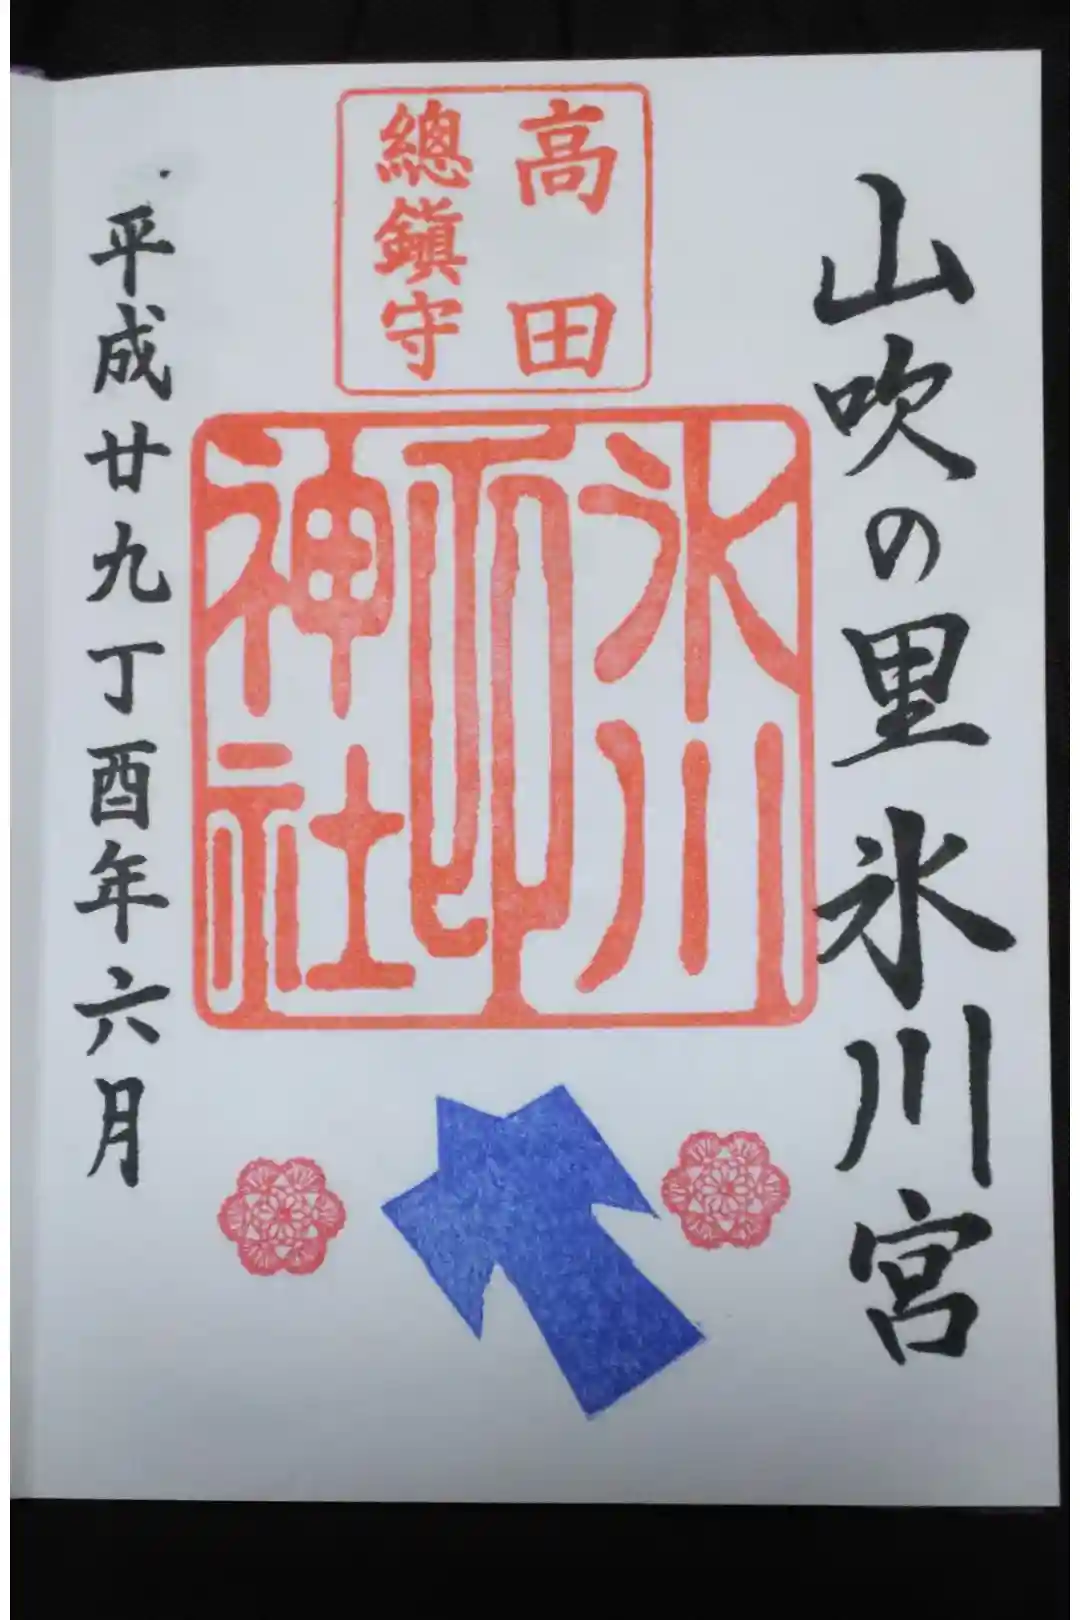 山吹の里氷川宮
高田
總鎮守
氷川
神社
平成廿九丁酉年六月